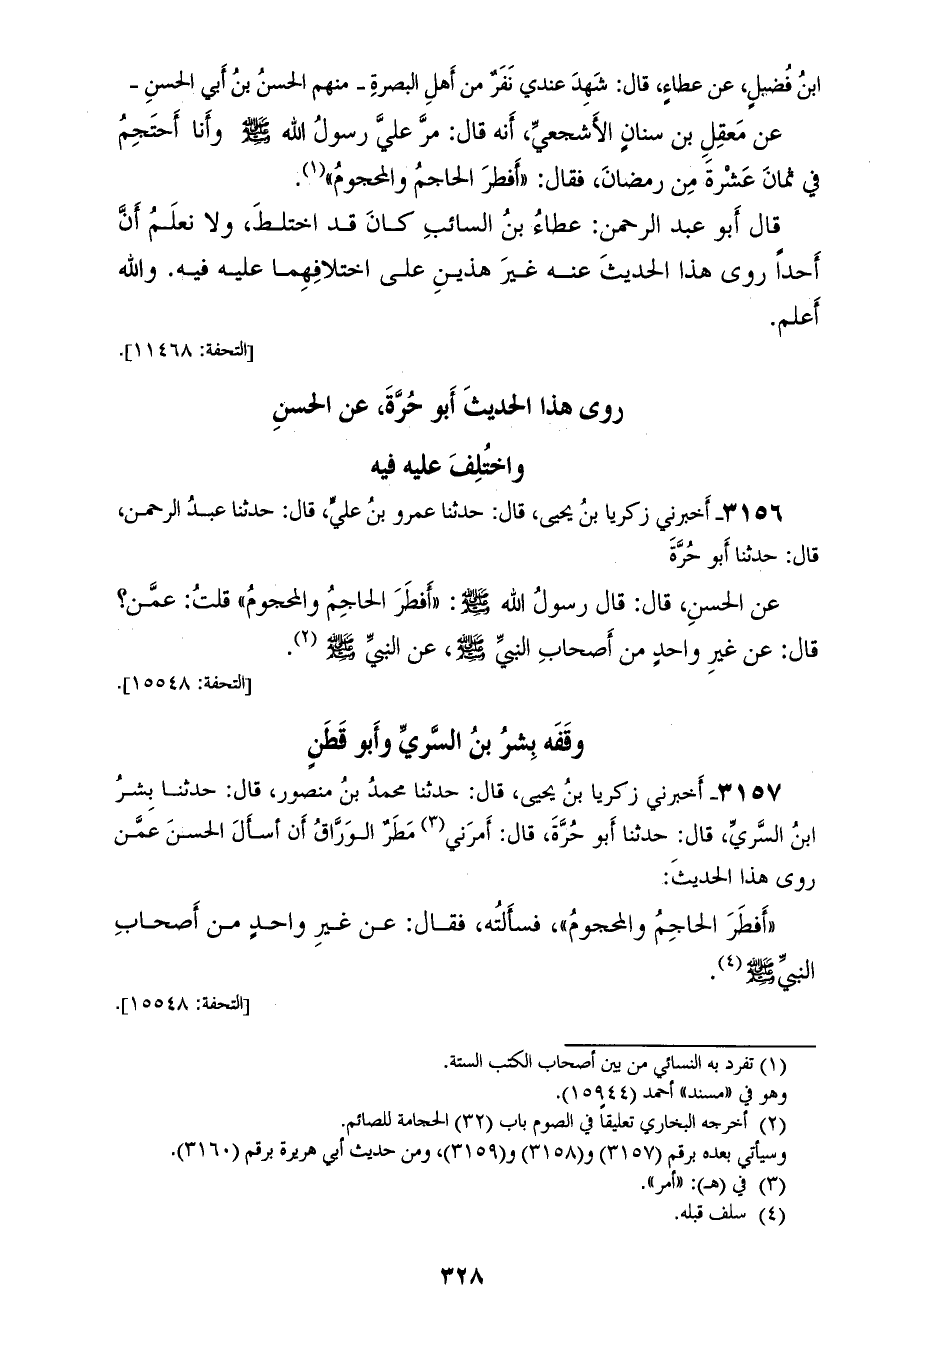 ابنُ فُضيلٍ، عن عطاءٍ، قال: شَهِدَ عندي نَفَرٌ من أَهلِ البصرةِ ـ منهم الحسنُ بنُ أَبي الحسنِ ـ
عن مَعقِلِ بن سنانٍ الأَشجعيِّ، أَنه قال: مرَّ عليَّ رسولُ الله ﷺ وأَنا أَحتَجِمُ
في ثمانَ عَشْرةَ مِن رمضانَ، فقال: «أَفطرَ الحاجمُ والمحجومُ»(١).
قال أَبو عبد الرحمن: عطاءُ بنُ السائبِ كانَ قد اختلطَ، ولا نعلَمُ أَنَّ
أَحداً روى هذا الحديثَ عنه غيرَ هذينِ على اختلافِهِما عليه فيه. والله
أَعلم.
[التحفة: ١١٤٦٨].
روى هذا الحديثَ أَبو حُرَّةَ، عن الحسنِ
واختُلِفَ عليه فيه
٣١٥٦ـ أَخبرني زكريا بنُ يحيى، قال: حدثنا عمرو بنُ عليٍّ، قال: حدثنا عبدُ الرحمن،
قال: حدثنا أَبو حُرَّةَ
عن الحسنِ، قال: قال رسولُ الله ﷺ: «أَفطَرَ الحاجِمُ والمحجومُ» قلتُ: عمَّن؟
قال: عن غيرِ واحدٍ من أَصحابِ النبيِّ ﷺ، عن النبيِّ ﷺ(٢).
[التحفة: ١٥٥٤٨].
وقَفَه بِشرُ بنُ السَّريِّ وأَبو قَطَنٍ
٣١٥٧ـ أَخبرني زكريا بنُ يحيى، قال: حدثنا محمدُ بنُ منصور، قال: حدثنا بِشرُ
ابنُ السَّريِّ، قال: حدثنا أَبو حُرَّةَ، قال: أَمرَني(٣) مَطَرٌ الوَرَّاقُ أَن أَسأَلَ الحسنَ عمَّن
روى هذا الحديثَ:
«أَفطَرَ الحاجِمُ والمحجومُ»، فسأَلتُه، فقال: عن غيرِ واحدٍ من أَصحابِ
النبيِّ ﷺ(٤).
[التحفة: ١٥٥٤٨].
(١) تفرد به النسائي من بين أصحاب الكتب الستة.
وهو في «مسند» أحمد (١٥٩٤٤).
(٢) أخرجه البخاري تعليقاً في الصوم باب (٣٢) الحجامة للصائم.
وسيأتي بعده برقم (٣١٥٧) و(٣١٥٨) و(٣١٥٩)، ومن حديث أبي هريرة برقم (٣١٦٠).
(٣) في (هـ): «أمر».
(٤) سلف قبله.
٣٢٨